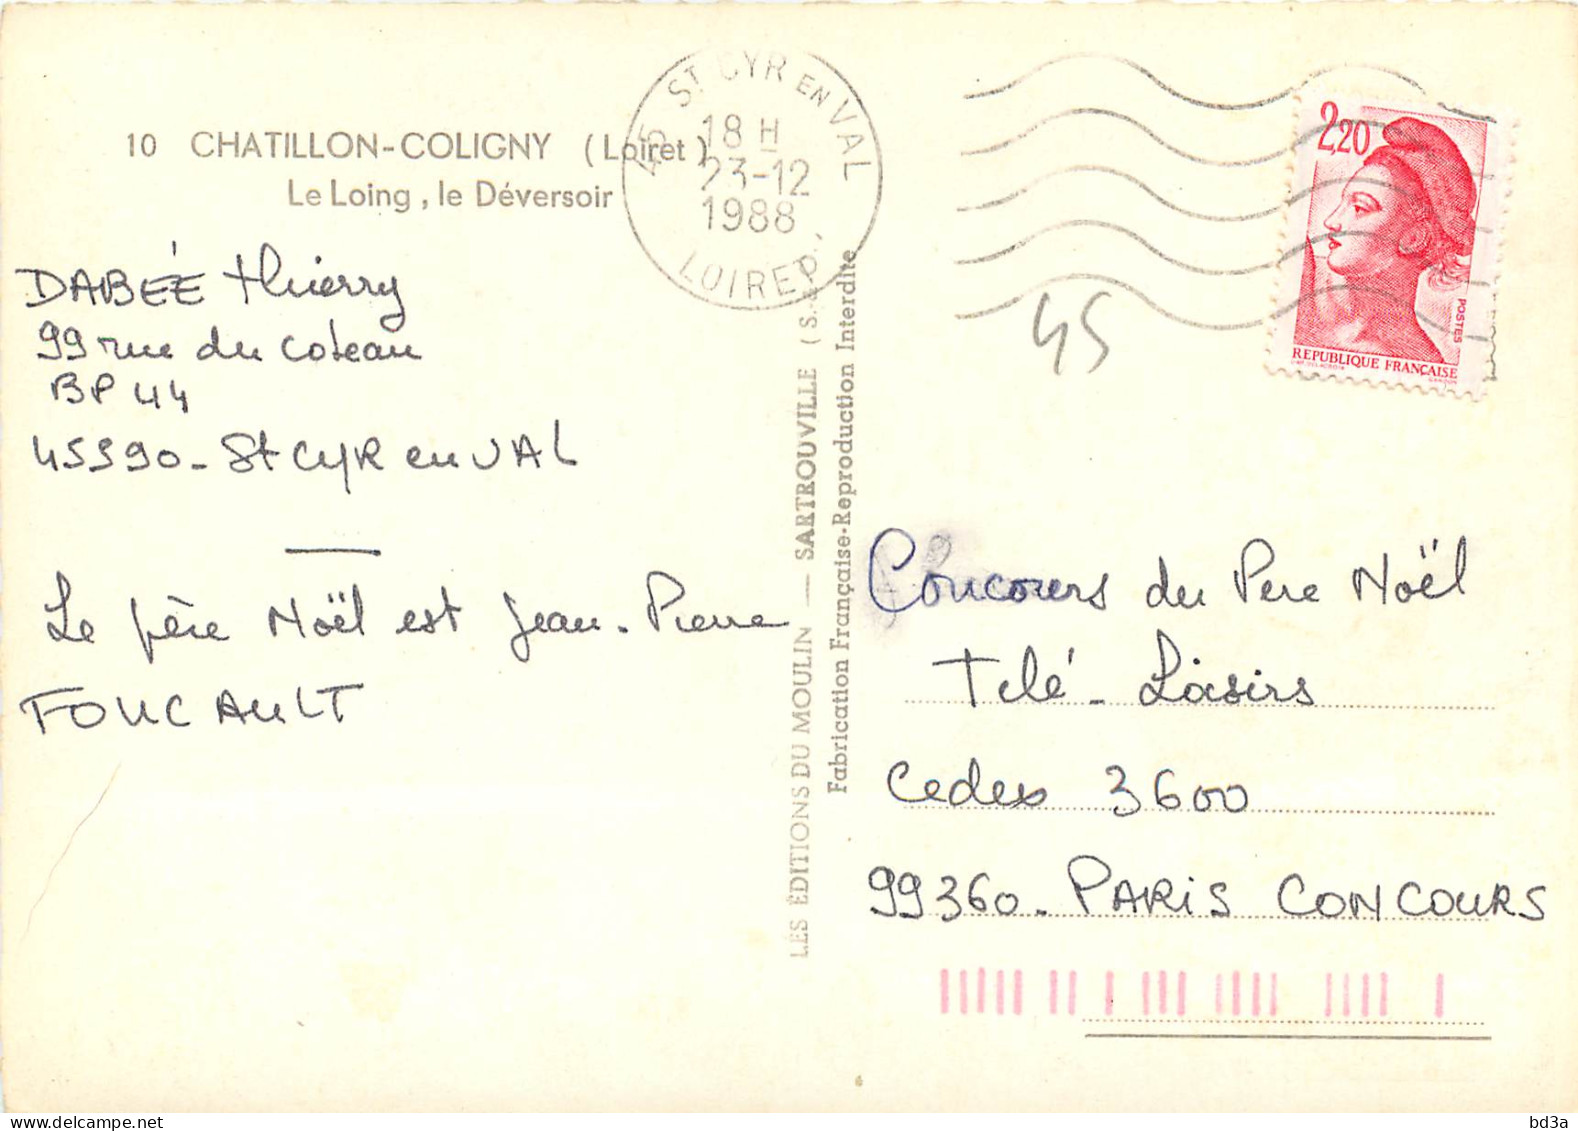 10 CHATILLON-COLIGNY (Loiret)
Le Loing, le Déversoir
DABÉE Thierry
99 rue du coteau
BP 44
45590 - St CYR en VAL
Le père Noël est Jean-Pierre
FOUCAULT
LES ÉDITIONS DU MOULIN — SARTROUVILLE (S.-
Fabrication Française-Reproduction Interdite
45 ST CYR EN VAL
18 H
23-12
1988
LOIRET
45
2,20
POSTES
REPUBLIQUE FRANÇAISE
GANDON
Concours du Pere Noël
Télé-Loisirs
Cedex 3600
99360 - PARIS CONCOURS
bd3a